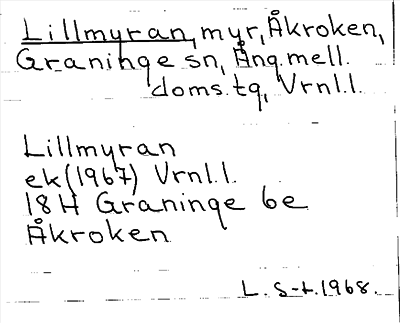 Lillmyran, myr, Åkroken,
Graninge sn, Ång.mell.
doms.tg, Vrnl.l.
Lillmyran
ek (1967) Vrnl.l.
18H Graninge 6e
Åkroken
L. S-t. 1968.